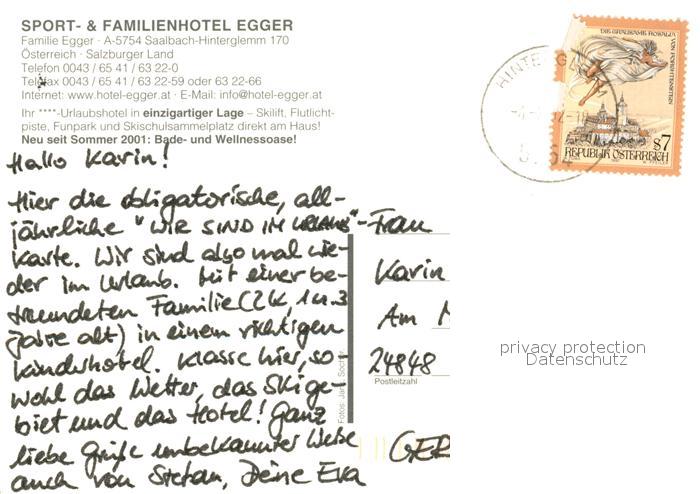 SPORT- & FAMILIENHOTEL EGGER
Familie Egger · A-5754 Saalbach-Hinterglemm 170
Österreich · Salzburger Land
Telefon 0043 / 65 41 / 63 22-0
Telefax 0043 / 65 41 / 63 22-59 oder 63 22-66
Internet: www.hotel-egger.at · E-Mail: info@hotel-egger.at
Ihr ****-Urlaubshotel in einzigartiger Lage – Skilift, Flutlicht-
piste, Funpark und Skischulsammelplatz direkt am Haus!
Neu seit Sommer 2001: Bade- und Wellnessoase!
Hallo Karin!
Hier die obligatorische, all-
jährliche "WIR SIND IM URLAUB"-
Karte. Wir sind also mal wie-
der im Urlaub. Mit einer be-
freundeten Familie (2K, 1 u. 3
Jahre alt) in einem richtigen
Kinderhotel. Klasse hier, so-
wohl das Wetter, das Skige-
biet und das Hotel! Ganz
liebe Grüße unbekannter Weise
auch von Stefan, Deine Eva
Frau
Karin
Am
24848
Postleitzahl
GER
Fotos:
DIE GRAUSAME ROSALIA
VON FORCHTENSTEIN
S7
REPUBLIK ÖSTERREICH
HINTERG
privacy protection
Datenschutz